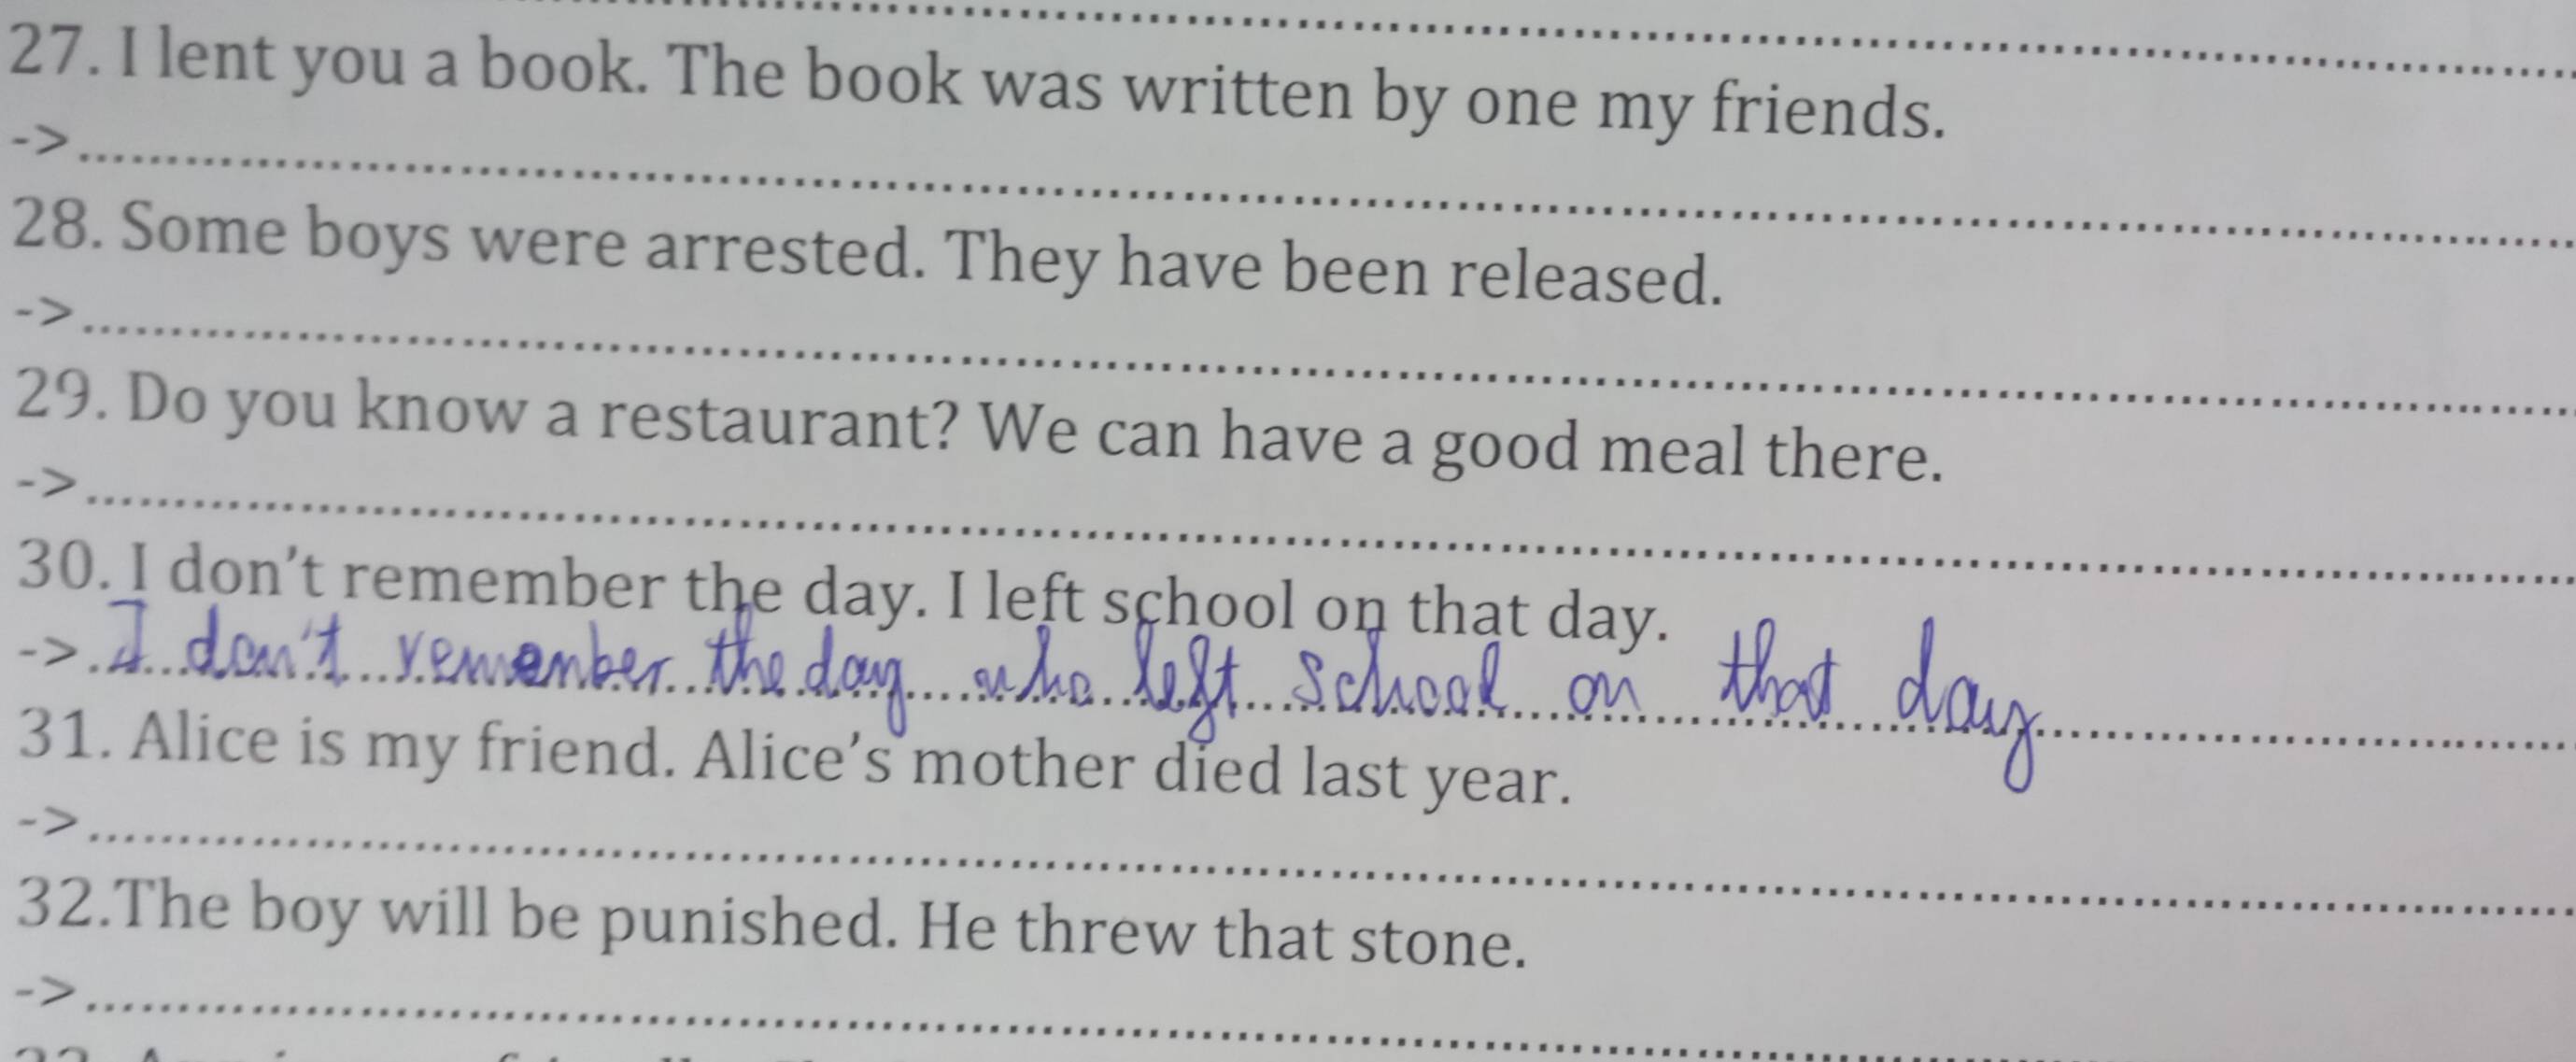 27. I lent you a book. The book was written by one my friends.
->
28. Some boys were arrested. They have been released.
->
29. Do you know a restaurant? We can have a good meal there.
->
30. I don't remember the day. I left school on that day.
-> I don't remember the day who left school on that day
31. Alice is my friend. Alice's mother died last year.
->
32.The boy will be punished. He threw that stone.
->